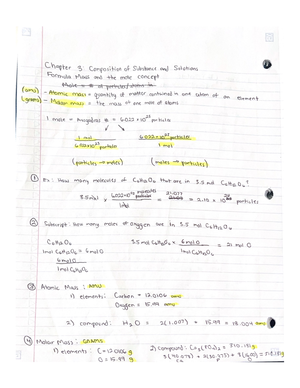 Chapter 3: Composition of Substances and Solutions
Formula Mass and the mole concept
(amu) - Atomic mass = quantity of matter contained in one atom of an element
(grams) - Molar mass = The mass of one mole of atoms
1 mole = Avogadros # = 6.022 × 10²³ particles
1 mol 6.022×10²³ particles
6.022×10²³ particles 1 mol
(particles → moles) (moles → particles)
① Ex: How many molecules of C₆H₁₂O₆ that are in 3.5 mol C₆H₁₂O₆?
3.5 mol × 6.022×10²³ molecules = = 2.10 × 10²⁴ particles
1 mol
② Subscript: how many moles of oxygen are in 3.5 mol C₆H₁₂O₆
C₆H₁₂O₆ 3.5 mol C₆H₁₂O₆ × 6 mol O = 21 mol O
1 mol C₆H₁₂O₆ = 6 mol O 1 mol C₆H₁₂O₆
6 mol O
1 mol C₆H₁₂O₆
③ Atomic Mass: AMU
1) elements: Carbon = 12.0106 amu
Oxygen = 15.99 amu
2) compound: H₂O = 2(1.007) + 15.99 = 18.004 amu
④ Molar Mass: GRAMS
1) elements: C = 12.0106 g 2) compound: Ca₃(PO₄)₂ = 310.18 g
O = 15.99 g